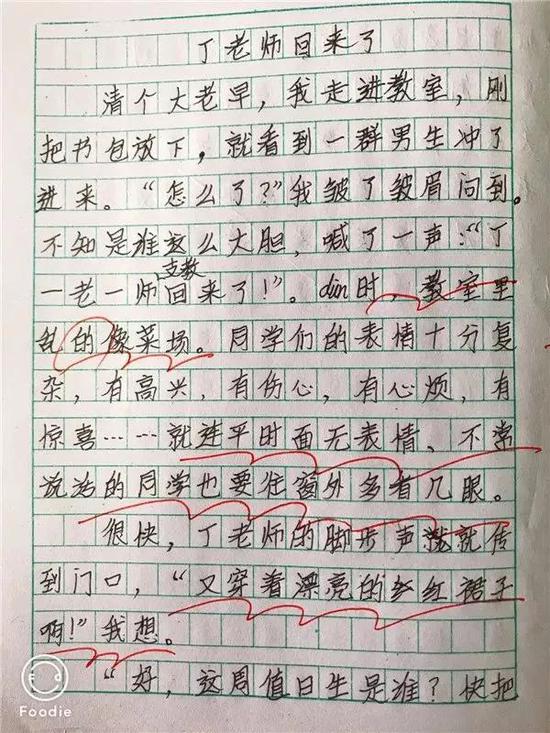 丁老师回来了
清个大老早，我走进教室，刚
把书包放下，就看到一群男生冲了
进来。“怎么了？”我皱了皱眉问到。
不知是谁这么大胆，喊了一声：“丁
支教
一老一师回来了！”。din时，教室里
乱的像菜场。同学们的表情十分复
杂，有高兴，有伤心，有心烦，有
惊喜……就连平时面无表情、不常
说话的同学也要往窗外多看几眼。
很快，丁老师的脚步声就传
到门口，“又穿着漂亮的红裙子
啊！”我想。
“好，这周值日生是谁？快把
Foodie